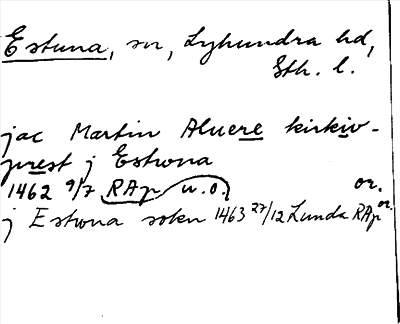 Estuna, sn, Lyhundra hd,
Sth. l.
jac Martin Aluere kirkio-
prest j Estwna
1462 9/7 RAp u.o. or.
j Estwna sokn 1463 27/12 Lunda RAp or.